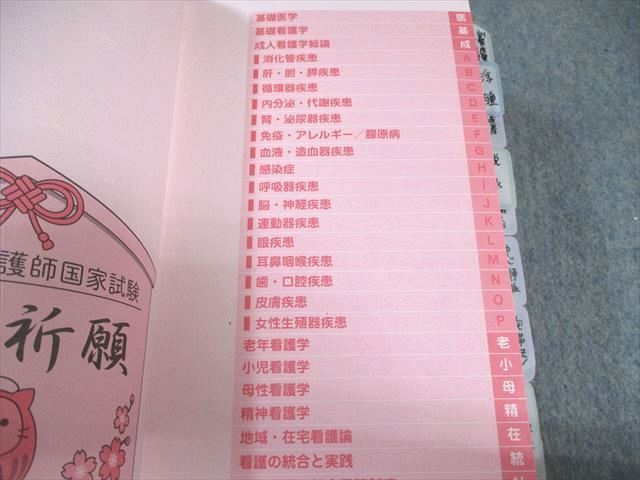 基礎医学 医
基礎看護学 基
成人看護学総論 成
消化管疾患 A
肝・胆・膵疾患 B
循環器疾患 C
内分泌・代謝疾患 D
腎・泌尿器疾患 E
免疫・アレルギー／膠原病 F
血液・造血器疾患 G
感染症 H
呼吸器疾患 I
脳・神経疾患 J
運動器疾患 K
眼疾患 L
耳鼻咽喉疾患 M
歯・口腔疾患 N
皮膚疾患 O
女性生殖器疾患 P
老年看護学 老
小児看護学 小
母性看護学 母
精神看護学 精
地域・在宅看護論 在
看護の統合と実践 統
護師国家試験
祈願
浮腫